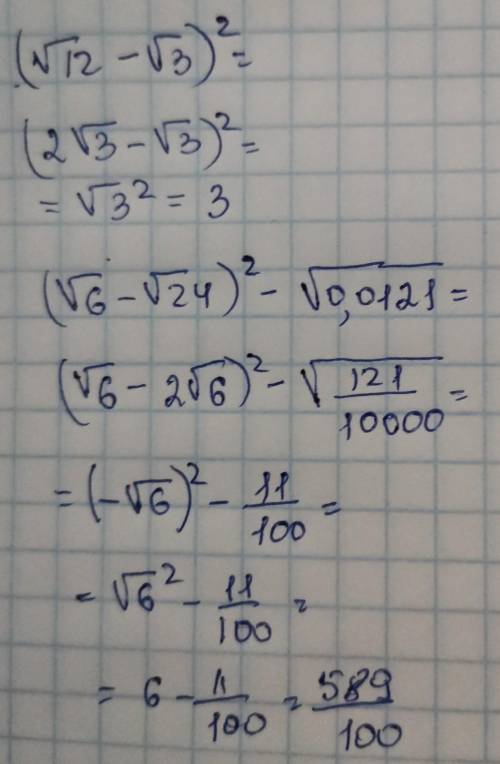 (√12 - √3)² =
(2√3 - √3)² =
= √3² = 3
(√6 - √24)² - √0,0121 =
(√6 - 2√6)² - √121/10000 =
= (-√6)² - 11/100 =
= √6² - 11/100 =
= 6 - 11/100 = 589/100